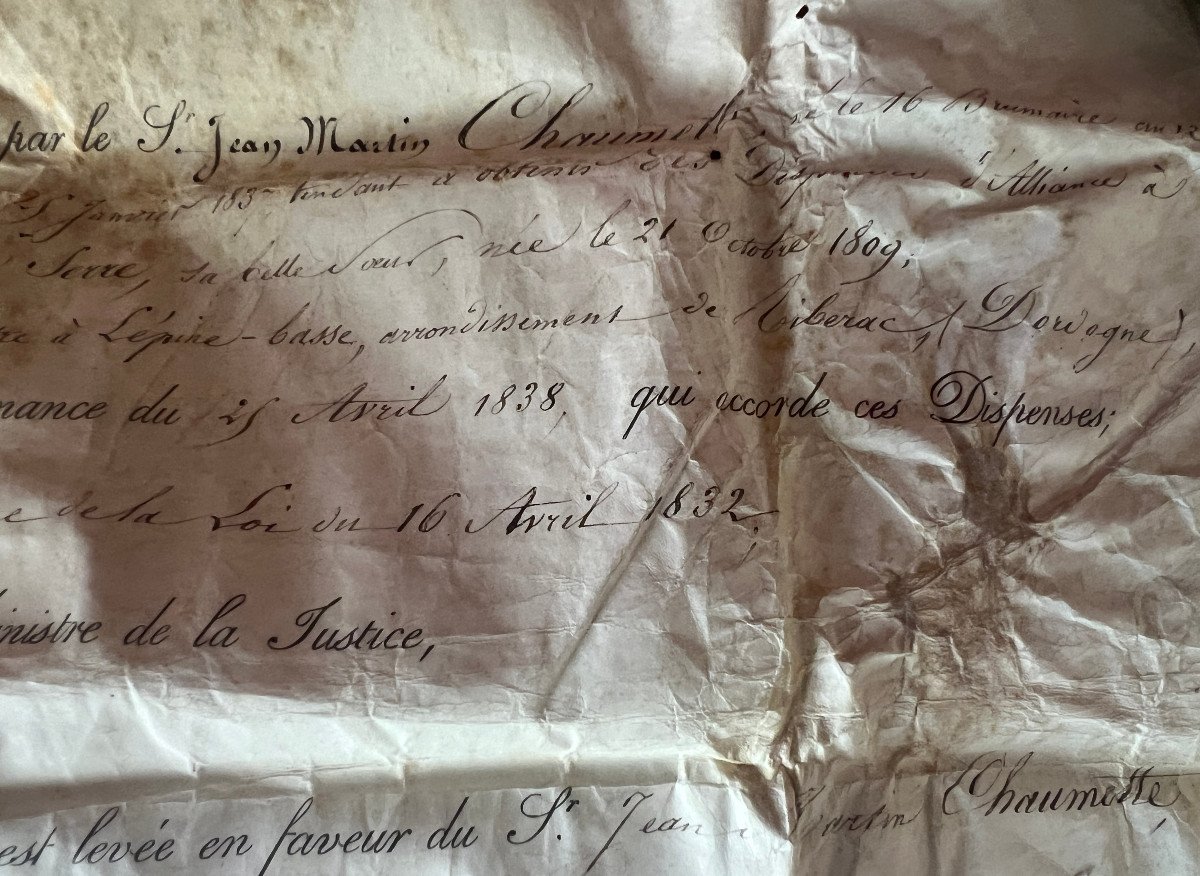 par le Sr. Jean Martin Chaumette, né le 16 Brumaire an
Janvier 1837 tendant à obtenir des Dispenses d'Alliance à
Serre, sa belle Sœur, née le 21 Octobre 1809;
à Lépine-basse, arrondissement de Riberac, (Dordogne),
nance du 25 Avril 1838, qui accorde ces Dispenses;
e de la Loi du 16 Avril 1832.
inistre de la Justice,
est levée en faveur du Sr. Jean Martin Chaumette,